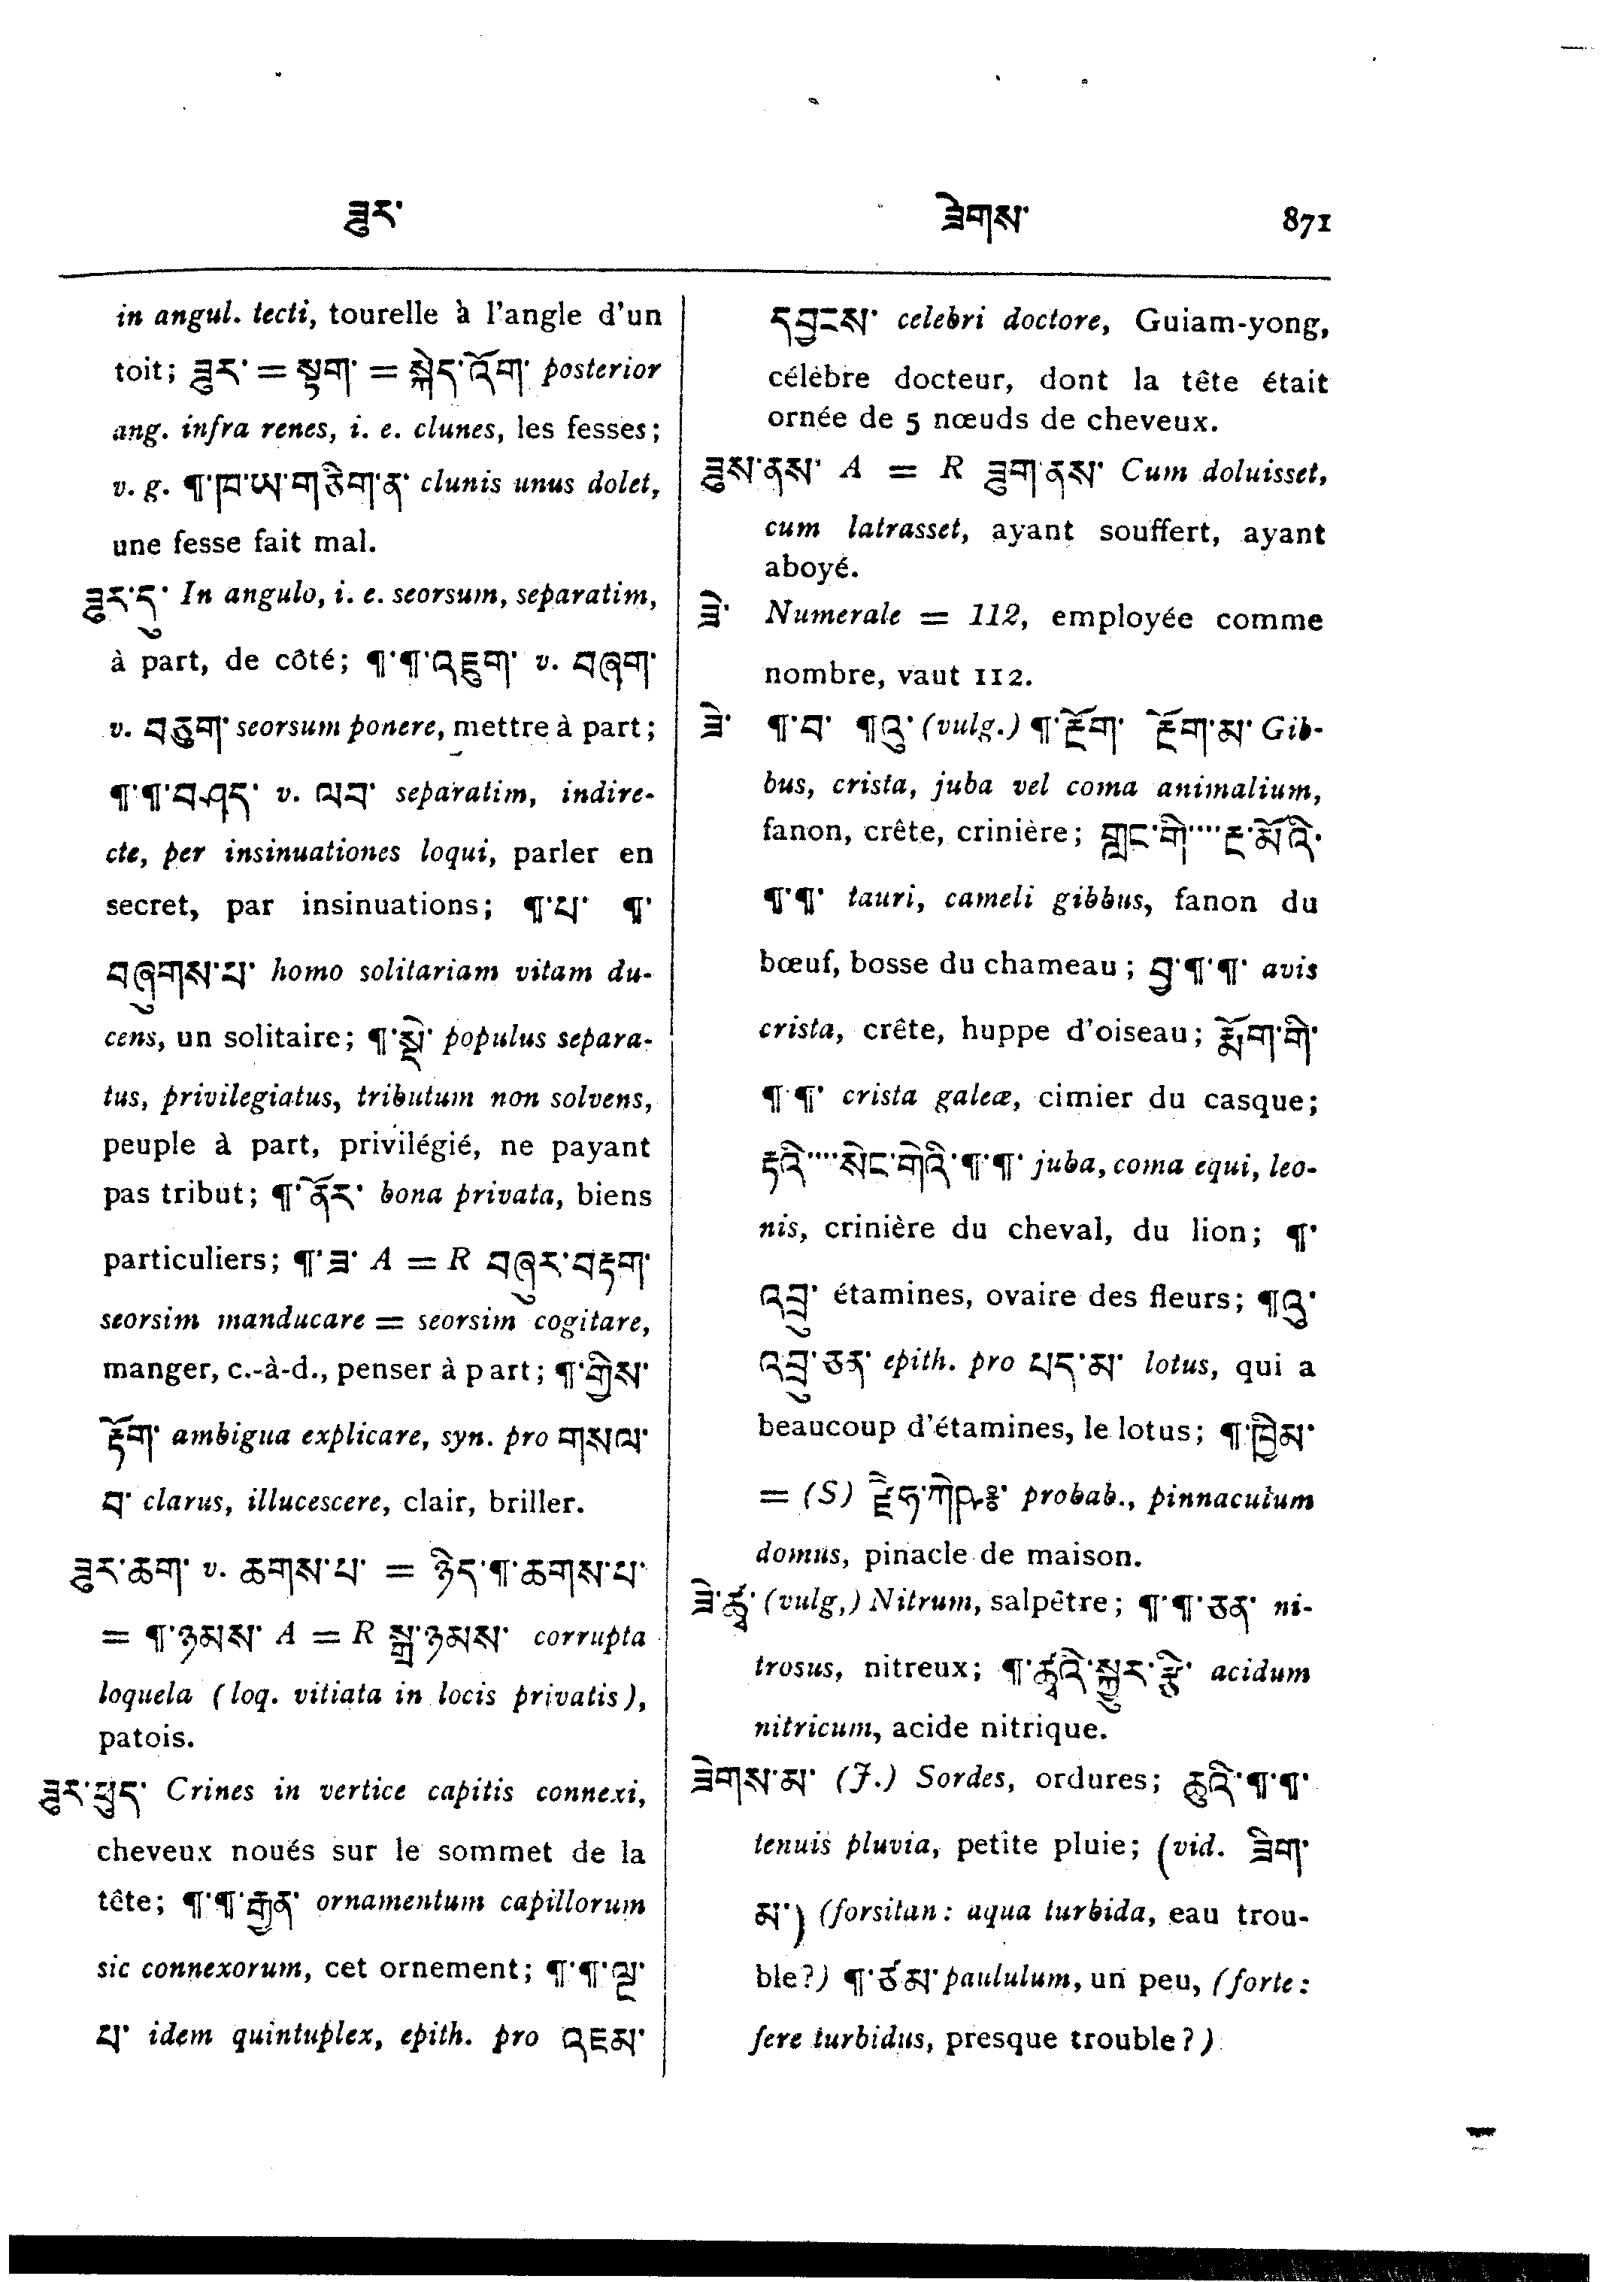 ཟུར་
ཟེགས་
871
in angul. tecti, tourelle à l'angle d'un
toit; ཟུར་ = སྟག་ = སྐེད་འོག་ posterior
ang. infra renes, i. e. clunes, les fesses;
v. g. ¶་ཁ་ཡ་གཅིག་ན་ clunis unus dolet,
une fesse fait mal.
ཟུར་དུ་ In angulo, i. e. seorsum, separatim,
à part, de côté; ¶་¶་འཇུག་ v. བཞག་
v. བཅུག་ seorsum ponere, mettre à part;
¶་¶་བཤད་ v. ལབ་ separatim, indire-
cte, per insinuationes loqui, parler en
secret, par insinuations; ¶་པ་ ¶་
བཞུགས་པ་ homo solitariam vitam du-
cens, un solitaire; ¶་སྡེ་ populus separa-
tus, privilegiatus, tributum non solvens,
peuple à part, privilégié, ne payant
pas tribut; ¶་ནོར་ bona privata, biens
particuliers; ¶་ཟ་ A = R བཞུར་བརྟག་
seorsim manducare = seorsim cogitare,
manger, c.-à-d., penser à part; ¶་གྱིས་
རྟོག་ ambigua explicare, syn. pro གསལ་
བ་ clarus, illucescere, clair, briller.
ཟུར་ཆག་ v. ཆགས་པ་ = ཉིད་¶་ཆགས་པ་
= ¶་ཉམས་ A = R སྒྲ་ཉམས་ corrupta
loquela (loq. vitiata in locis privatis),
patois.
ཟུར་ཕུད་ Crines in vertice capitis connexi,
cheveux noués sur le sommet de la
tête; ¶་¶་རྒྱན་ ornamentum capillorum
sic connexorum, cet ornement; ¶་¶་ལྔ་
པ་ idem quintuplex, epith. pro འཇམ་
དབྱངས་ celebri doctore, Guiam-yong,
célèbre docteur, dont la tête était
ornée de 5 nœuds de cheveux.
ཟུས་ནས་ A = R ཟུག་ནས་ Cum doluisset,
cum latrasset, ayant souffert, ayant
aboyé.
ཟེ་ Numerale = 112, employée comme
nombre, vaut 112.
ཟེ་ ¶་བ་ ¶འུ་ (vulg.) ¶་རྔོག་ རྔོག་མ་ Gib-
bus, crista, juba vel coma animalium,
fanon, crête, crinière; གླང་གི་····རྔ་མོའི་
¶་¶་ tauri, cameli gibbus, fanon du
bœuf, bosse du chameau; བྱ་¶་¶་ avis
crista, crête, huppe d'oiseau; རྨོག་གི་
¶་¶་ crista galeæ, cimier du casque;
རྟའི་····སེང་གེའི་¶་¶་ juba, coma equi, leo-
nis, crinière du cheval, du lion; ¶་
འབྲུ་ étamines, ovaire des fleurs; ¶འུ་
འབྲུ་ཅན་ epith. pro པད་མ་ lotus, qui a
beaucoup d'étamines, le lotus; ¶་ཁྱིམ་
= (S) probab., pinnaculum
domus, pinacle de maison.
ཟེ་ཚྭ་ (vulg,) Nitrum, salpêtre; ¶་¶་ཅན་ ni-
trosus, nitreux; ¶་ཚྭའི་སྐྱུར་རྩི་ acidum
nitricum, acide nitrique.
ཟེགས་མ་ (J.) Sordes, ordures; ཆུའི་¶་¶་
tenuis pluvia, petite pluie; (vid. ཟེག་
མ་) (forsitan: aqua turbida, eau trou-
ble?) ¶་ཙམ་ paululum, un peu, (forte:
fere turbidus, presque trouble?)